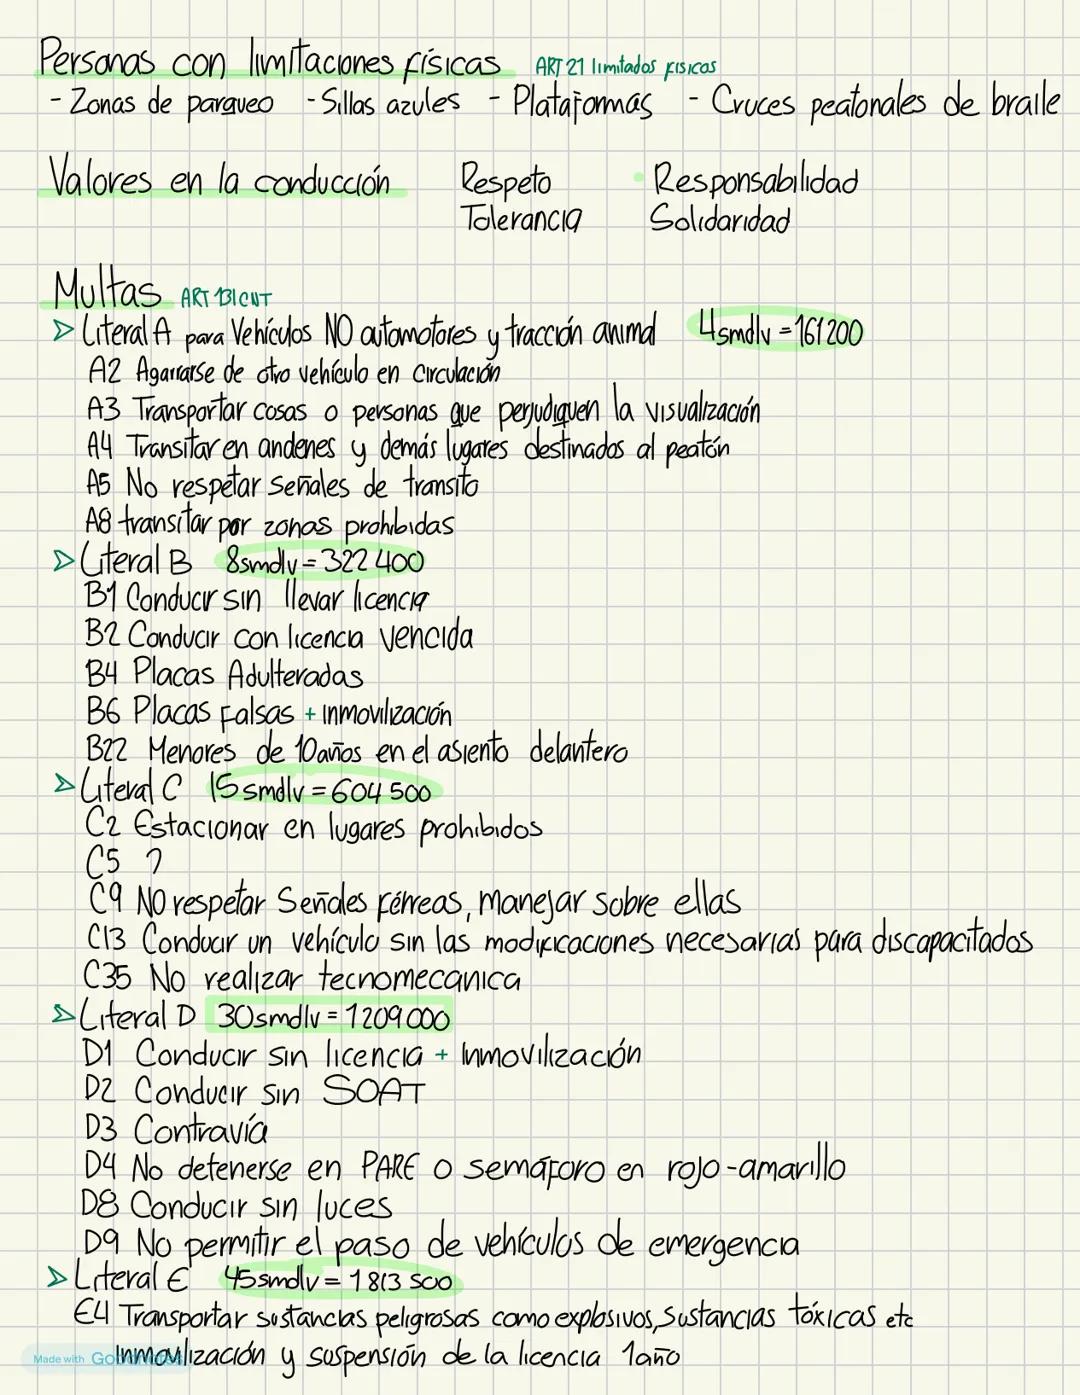 Personas con limitaciones físicas ART 21 limitados fisicos
- Zonas de parqueo - Sillas azules - Plataformas - Cruces peatonales de braile
Valores en la conducción Respeto · Responsabilidad
Tolerancia Solidaridad
Multas ART 131 CNT
> Literal A para Vehículos NO automotores y tracción animal 4smdlv = 161 200
A2 Agarrarse de otro vehículo en circulación
A3 Transportar cosas o personas que perjudiquen la visualización
A4 Transitar en andenes y demás lugares destinados al peatón
A5 No respetar señales de transito
A8 transitar por zonas prohibidas
> Literal B 8smdlv = 322 400
B1 Conducir sin llevar licencia
B2 Conducir con licencia vencida
B4 Placas Adulteradas
B6 Placas falsas + inmovilización
B22 Menores de 10años en el asiento delantero
> Literal C 15 smdlv = 604 500
C2 Estacionar en lugares prohibidos
C5 ?
C9 NO respetar Señales férreas, manejar sobre ellas
C13 Conducir un vehículo sin las modificaciones necesarias para discapacitados
C35 No realizar tecnomecanica
> Literal D 30smdlv = 1209 000
D1 Conducir sin licencia + Inmovilización
D2 Conducir sin SOAT
D3 Contravía
D4 No detenerse en PARE o semáforo en rojo-amarillo
D8 Conducir sin luces
D9 No permitir el paso de vehículos de emergencia
> Literal E 45smdlv = 1 813 500
E4 Transportar sustancias peligrosas como explosivos, sustancias tóxicas etc
Inmovilización y suspensión de la licencia 1año
Made with Goodnotes